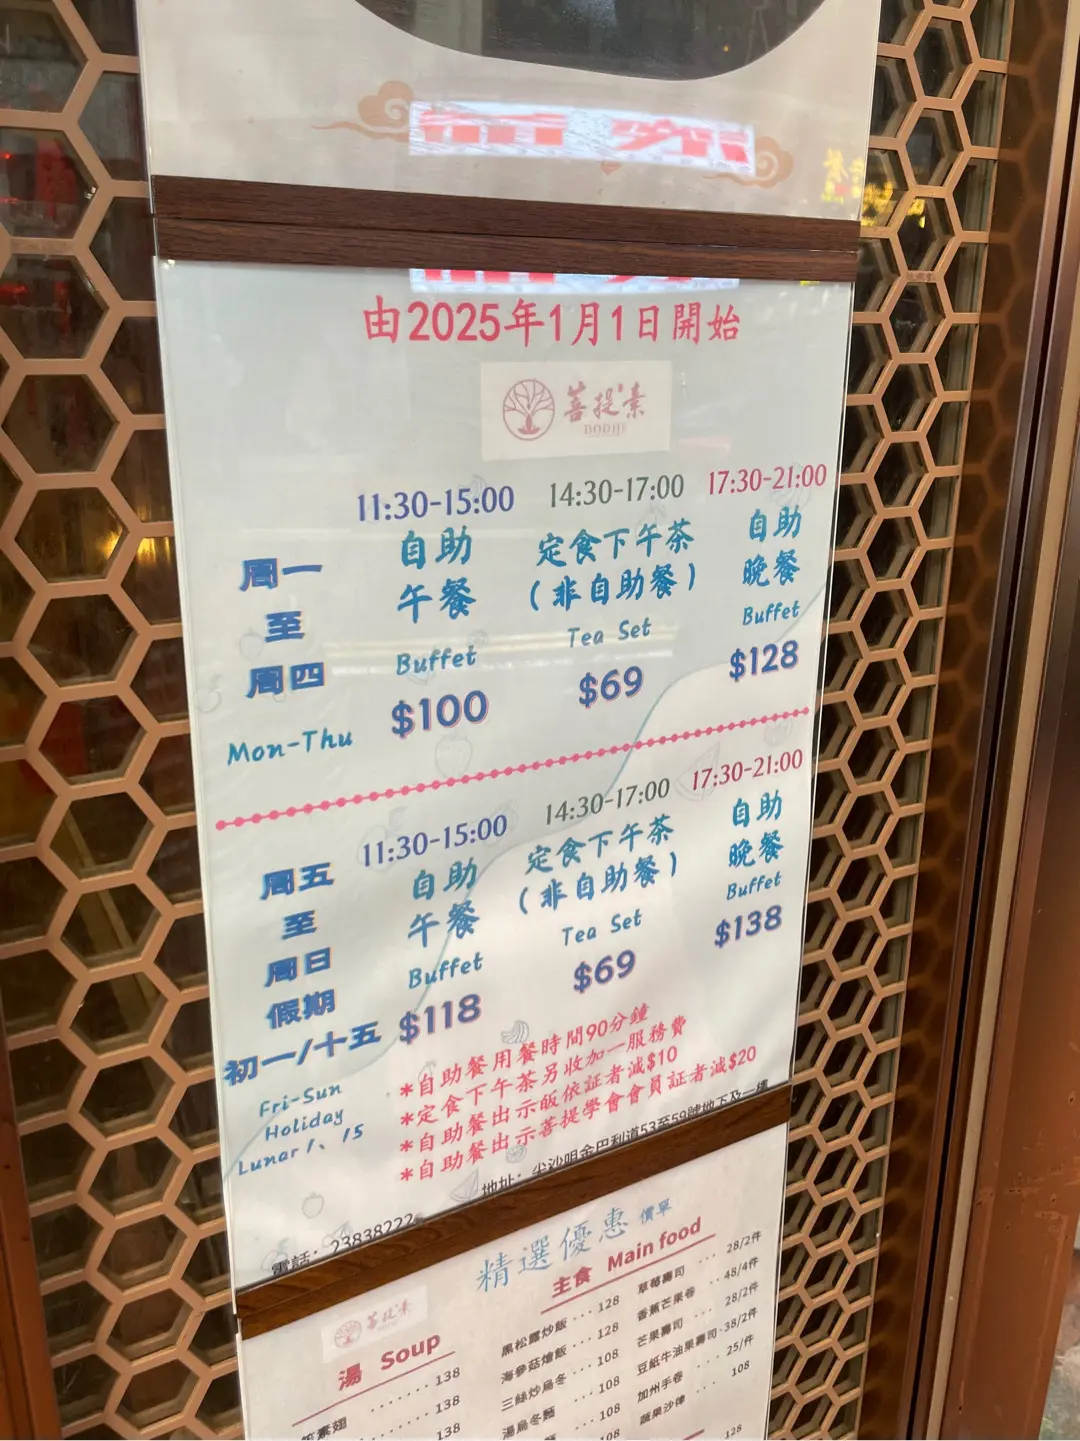 由2025年1月1日開始
菩提素
BODHI
11:30-15:00 14:30-17:00 17:30-21:00
周一
至
周四
Mon-Thu
自助
午餐
Buffet
$100
定食下午茶
(非自助餐)
Tea Set
$69
自助
晚餐
Buffet
$128
11:30-15:00 14:30-17:00 17:30-21:00
周五
至
周日
假期
初一/十五
Fri-Sun
Holiday
Lunar 1、15
自助
午餐
Buffet
$118
定食下午茶
(非自助餐)
Tea Set
$69
自助
晚餐
Buffet
$138
*自助餐用餐時間90分鐘
*定食下午茶另收加一服務費
*自助餐出示皈依証者減$10
*自助餐出示菩提學會會員証者減$20
地址: 尖沙咀金巴利道53至59號地下及一樓
電話: 23838222
精選優惠 價單
菩提素
湯 Soup
138
138
138
主食 Main food
黑松露炒飯 ··· 128
海參菇燴飯 ··· 128
三絲炒烏冬 ··· 108
湯烏冬麵 ··· 108
108
草莓壽司 ··· 28/2件
香蕉芒果卷 ·· 48/4件
芒果壽司 ··· 28/2件
豆紙牛油果壽司·38/2件
加州手卷 ··· 25/件
蔬果沙律 ··· 108
128